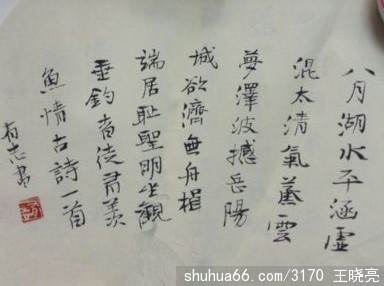 八月湖水平涵虚
混太清氣蒸雲
夢澤波撼岳陽
城欲濟無舟楫
端居耻聖明坐觀
垂釣者徒有羡
魚情古詩一首
有志書
shuhua66.com/3170 王晓亮